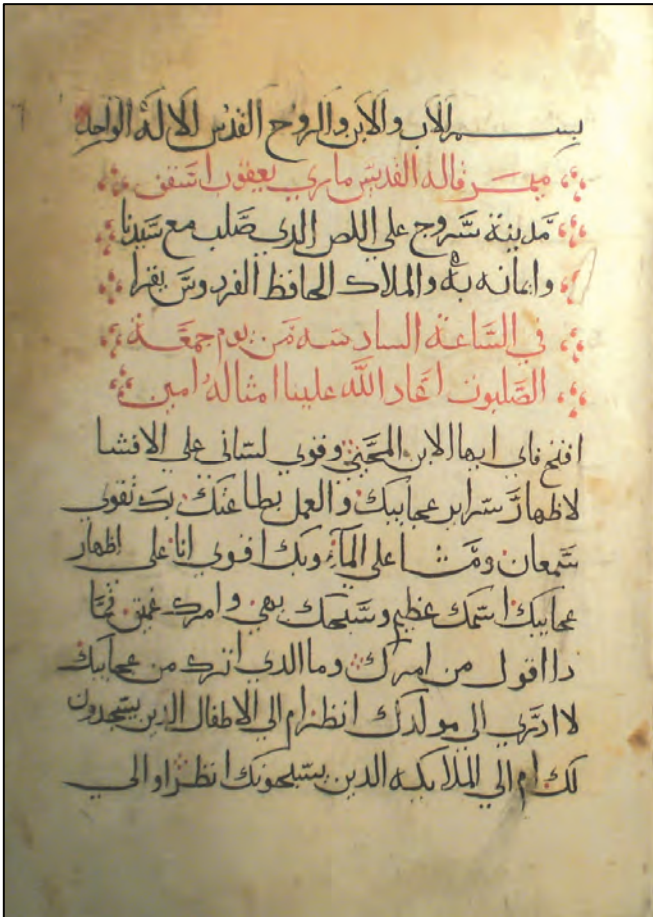 بسم الاب والابن والروح القدس الالة الواحد
ميمر قاله القديس ماري يعقوب اسقف
مدينة سروج علي اللص الذي صلب مع سيدنا
وايمانه به والملاك الحافظ الفردوس يقرا
في الساعة السادسه من يوم جمعة
الصلبوت اعاد الله علينا امثاله امين
افتح فاي ايها الابن المحيي وقوي لساني علي الافشا
لاظهار سراير عجايبك والعمل بطاعتك بك تقوي
سمعان ومشا علي المآء وبك اقوي انا علي اظهار
عجايبك اسمك عظيم وسبحك بهي وامرك عميق فما
دا اقول من امرك وما الدي اترك من عجايبك
لا ادري الي مولدك انظر ام الي الاطفال الدين يسجدون
لك ام الي الملايكه الدين يسبحونك انظر او الي